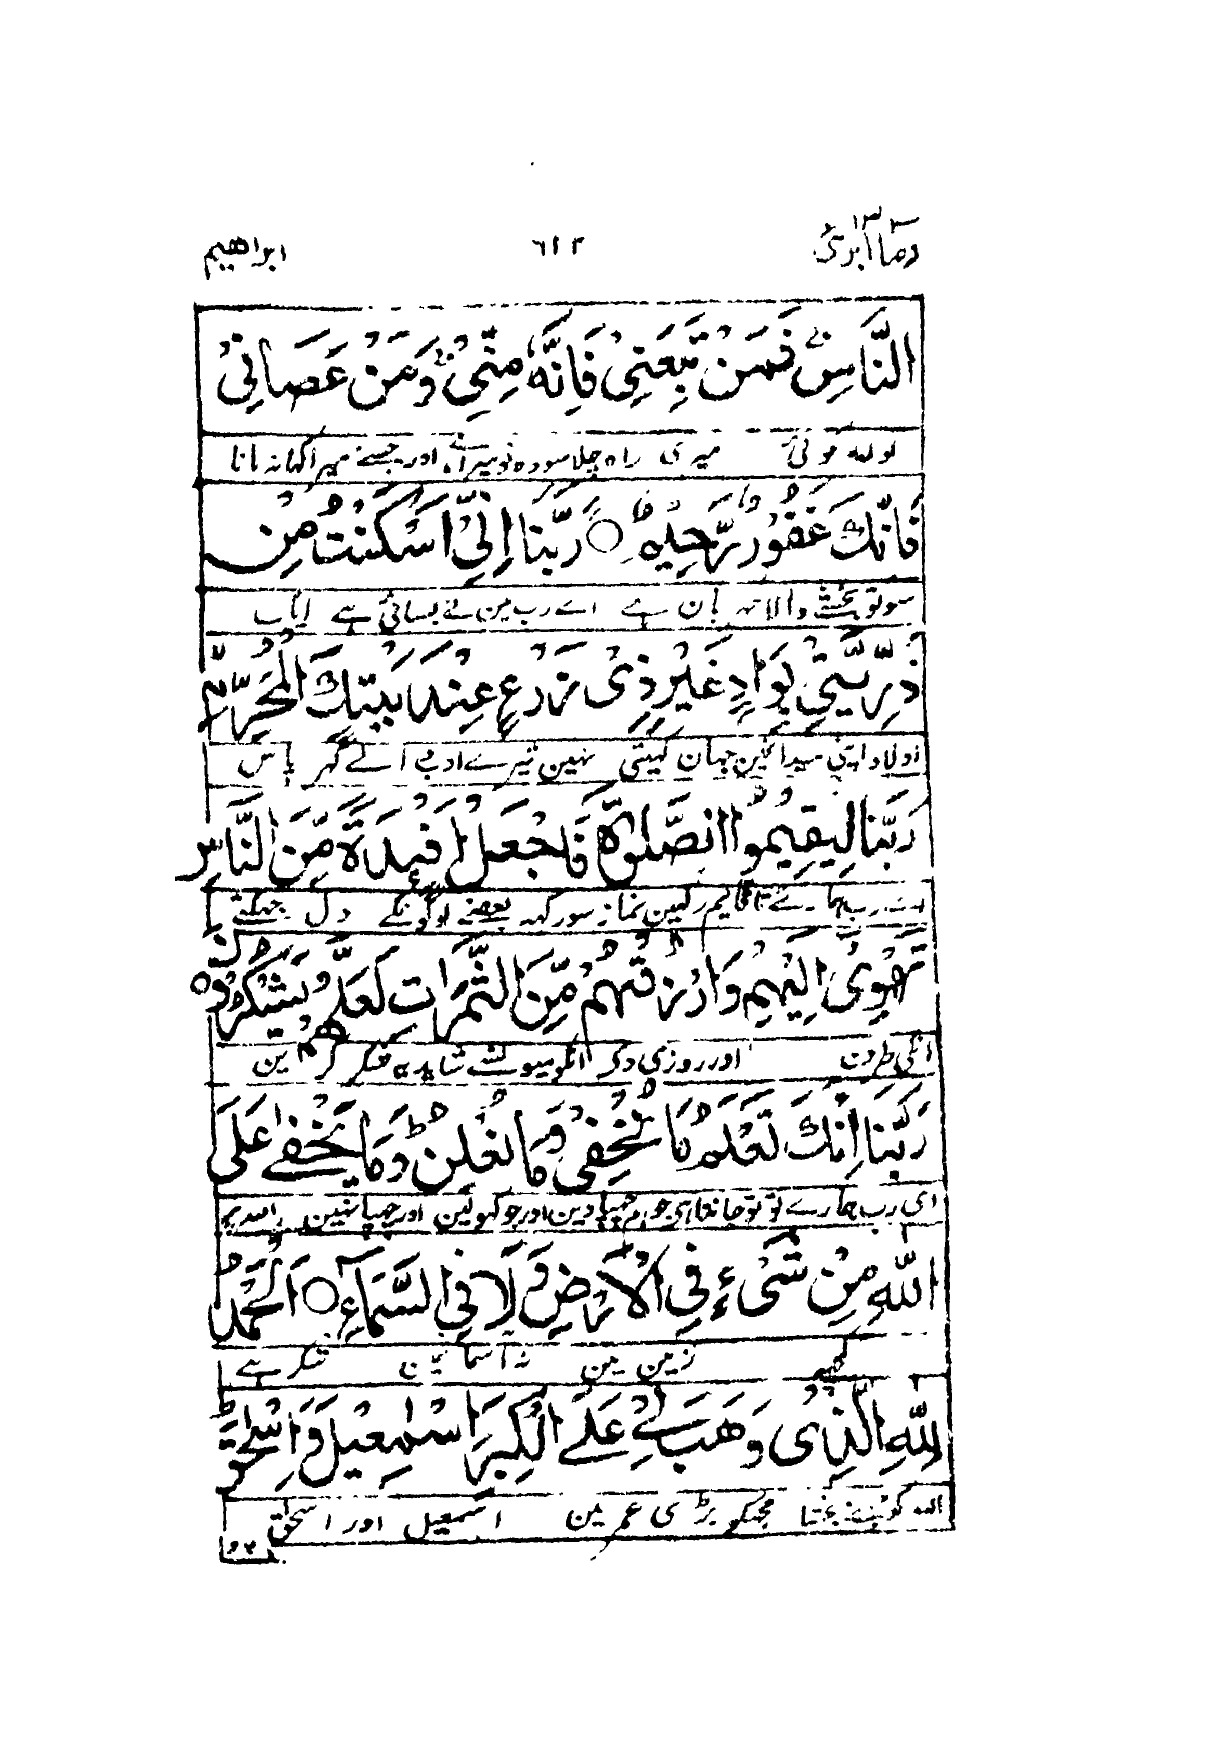 وما ابرئ ١٣ ٦١٣ ابراهيم
النَّاسِ فَمَنْ تَبِعَنِيْ فَاِنَّهٗ مِنِّيْ وَمَنْ عَصَانِيْ
میری راہ چلا سو وہ تو میرا ہے اور جسنے میرا کہا نہ مانا
فَاِنَّكَ غَفُوْرٌ رَّحِيْمٌ ○ رَبَّنَا اِنِّيْ اَسْكَنْتُ مِنْ
سو تو بخشنے والا مہربان ہے اے رب مین نے بسائی ہے ایک
ذُرِّيَّتِيْ بِوَادٍ غَيْرِ ذِيْ زَرْعٍ عِنْدَ بَيْتِكَ الْمُحَرَّمِ
اولاد اپنی میدانمین جہان کہیتی نہین تیرے ادب والے گہر پاس
رَبَّنَا لِيُقِيْمُوا الصَّلٰوةَ فَاجْعَلْ اَفْئِدَةً مِّنَ النَّاسِ
اے رب ہمارے تا قایم رکہین نماز سو رکہہ بعضے لوگونکے دل جہکتے
تَهْوِيْٓ اِلَيْهِمْ وَارْزُقْهُمْ مِّنَ الثَّمَرَاتِ لَعَلَّهُمْ يَشْكُرُوْنَ ○
انکی طرف اور روزی دے انکو میوونسے شاید یہ شکر کرین
رَبَّنَا اِنَّكَ تَعْلَمُ مَا نُخْفِيْ وَمَا نُعْلِنُ ط وَمَا يَخْفٰى عَلَى
ای رب ہمارے تو تو جانتا ہی جو ہم چہپا دین اور جو کہولین اور چہپا نہین اللہ پر
اللّٰهِ مِنْ شَيْءٍ فِي الْاَرْضِ وَلَا فِي السَّمَآءِ ○ اَلْحَمْدُ
کچہہ زمین مین نہ آسمانمین شکر ہے
لِلّٰهِ الَّذِيْ وَهَبَ لِيْ عَلَى الْكِبَرِ اِسْمٰعِيْلَ وَاِسْحٰقَ
اللہ کو جسنے بخشا مجہکو بڑی عمر مین اسمعیل اور اسحٰق